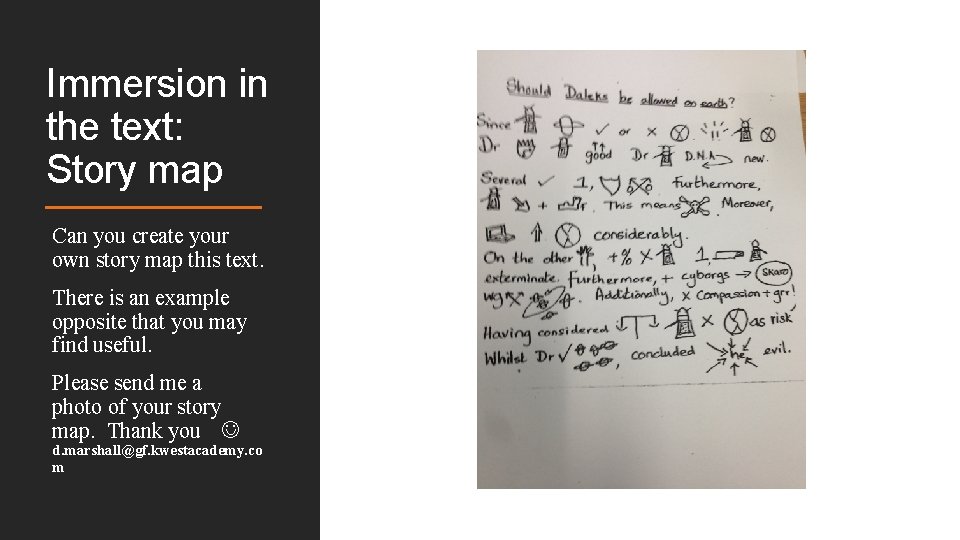 Immersion in
the text:
Story map
Can you create your
own story map this text.
There is an example
opposite that you may
find useful.
Please send me a
photo of your story
map. Thank you ☺
d.marshall@gf.kwestacademy.co
m
Should Daleks be allowed on earth?
Since ✓ or x
Dr good Dr D.N.A new.
Several ✓ 1, Furthermore,
+ . This means Moreover,
considerably.
On the other , +% x 1,
exterminate. Furthermore, + cyborgs → SKARO
. Additionally, x compassion + grr!
Having considered x as risk
Whilst Dr ✓ , concluded he evil.